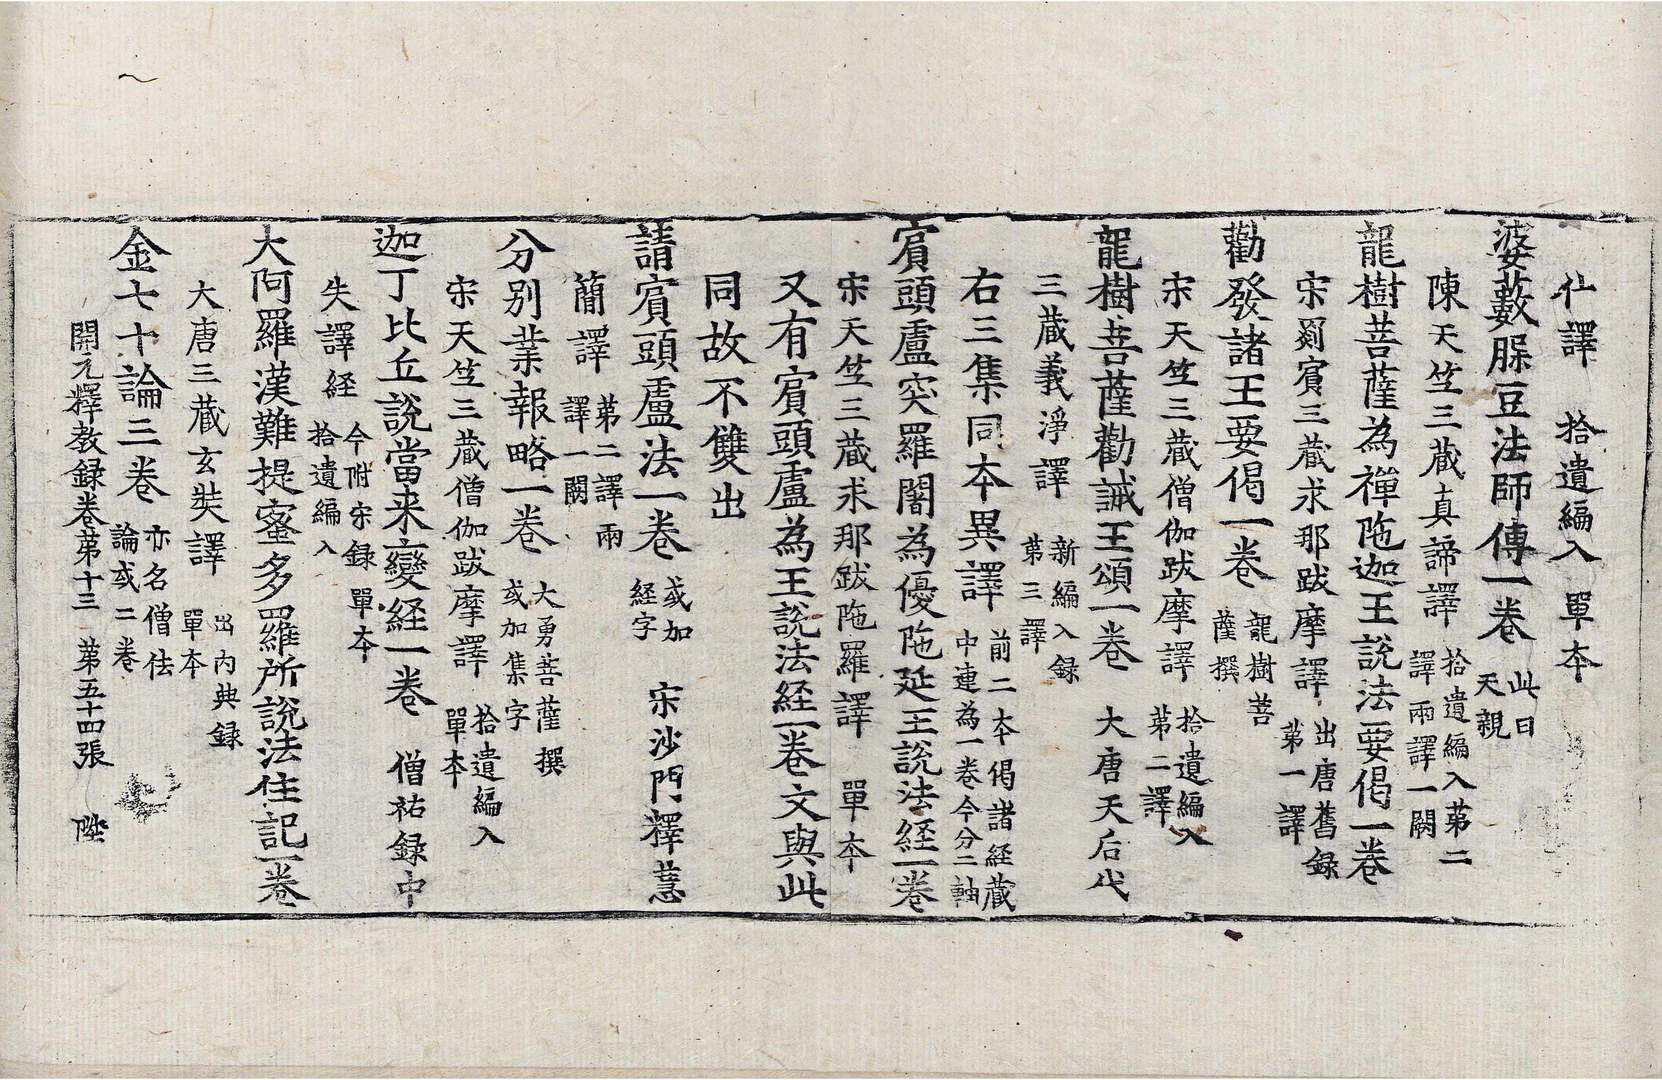 什譯 拾遺編入 單本
婆藪槃豆法師傳一卷 此曰天親
陳天竺三藏真諦譯 拾遺編入苐二譯兩譯一闕
龍樹菩薩為禪陁迦王說法要偈一卷
宋罽賓三藏求那跋摩譯 出唐舊録苐一譯
勸發諸王要偈一卷 龍樹菩薩撰
宋天竺三藏僧伽跋摩譯 拾遺編入苐二譯
龍樹菩薩勸誡王頌一卷 大唐天后代
三藏義淨譯 新編入録苐三譯
右三集同本異譯 前二本偈諸經藏中連為一卷今分二軸
賔頭盧突羅闍為優陁延王說法經一卷
宋天竺三藏求那跋陁羅譯 單本
又有賔頭盧為王說法経一卷文與此
同故不雙出
請賔頭盧法一卷 或加経字 宋沙門釋慧
蕳譯 苐二譯兩譯一闕
分別業報略一卷 大勇菩薩撰或加集字
宋天竺三藏僧伽跋摩譯 拾遺編入單本
迦丁比丘說當来變経一卷 僧祐録中
失譯経 今附宋録拾遺編入 單本
大阿羅漢難提蜜多羅所說法住記一卷
大唐三藏玄奘譯 出內典録單本
金七十論三卷 亦名僧佉論或二卷
開元釋教録卷苐十三 苐五十四張 陛